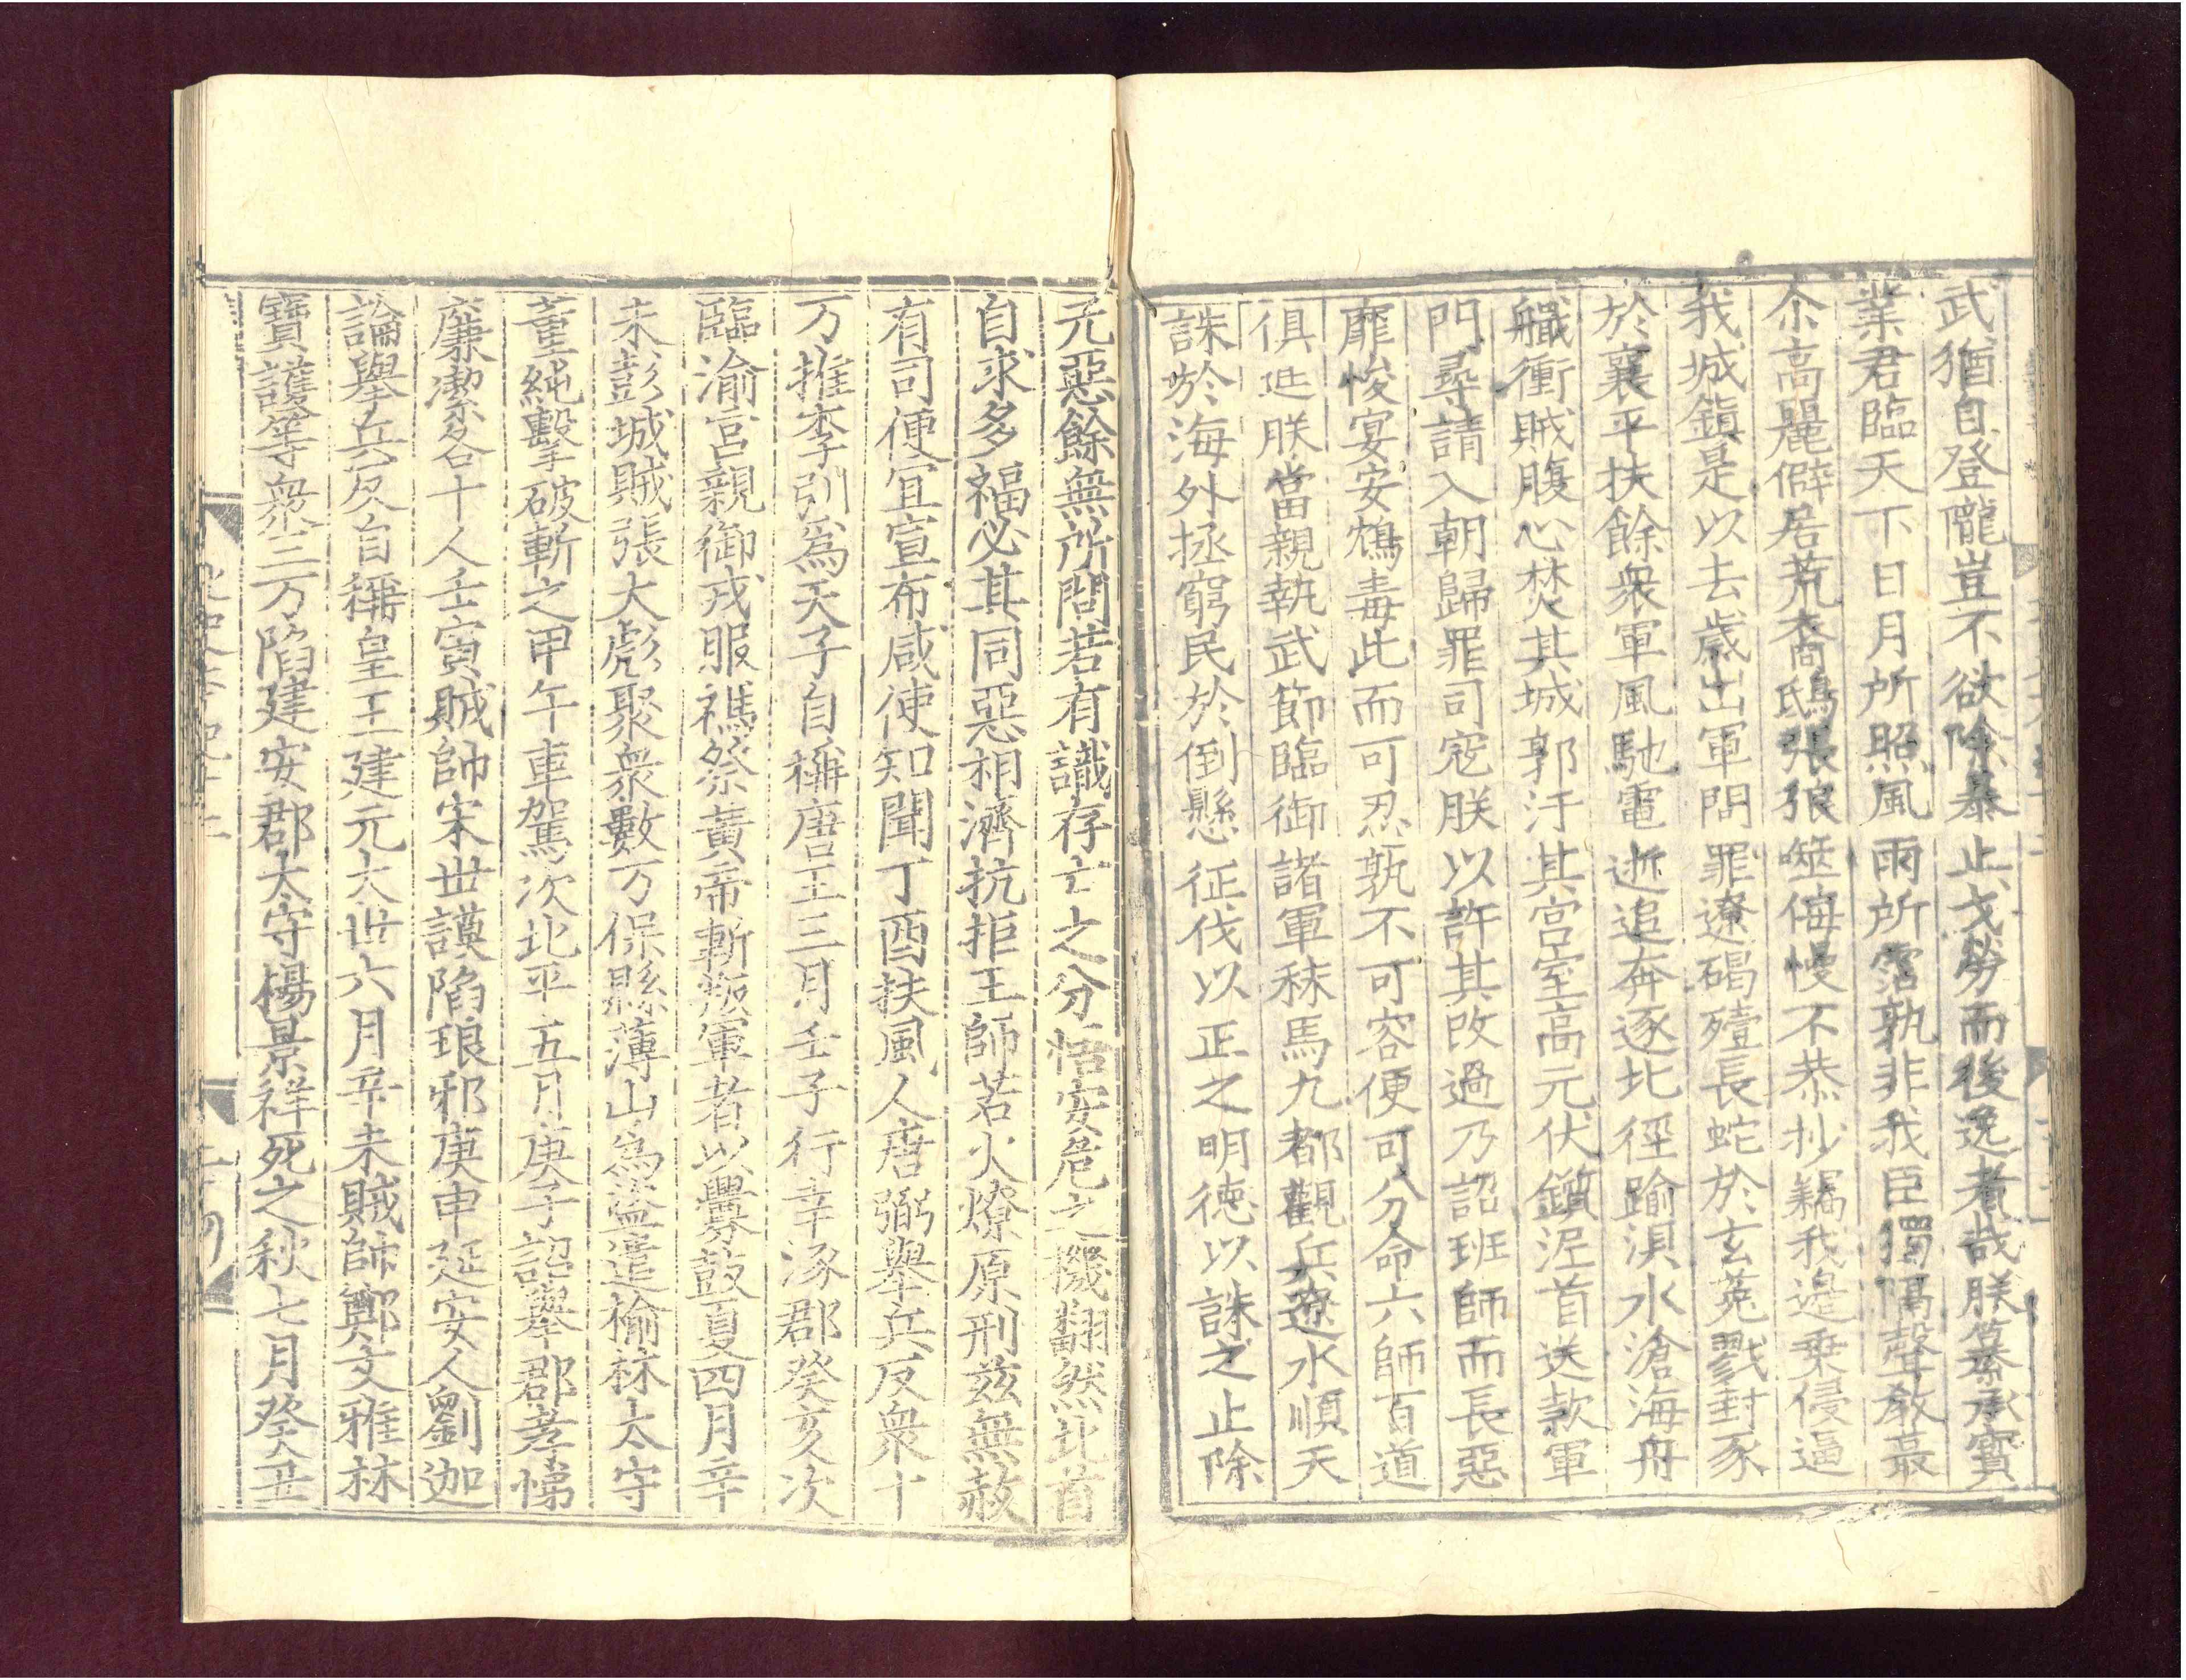 武猶自登隴豈不欲除暴止戈勞而後逸者哉朕纂承寳
業君臨天下日月所照風雨所霑孰非我臣獨隔聲教蕞
尒高麗僻居荒裔鴟張狼噬侮慢不恭抄竊我邊乗侵逼
我城鎮是以去歳出軍問罪遼碣殪長蛇於玄菟戮封豕
於襄平扶餘衆軍風馳電逝追奔逐北徑踰浿水滄海舟
檝衝賊腹心焚其城郭汙其宮室高元伏鑕泥首送款軍
門尋請入朝歸罪司寇朕以許其改過乃詔班師而長惡
靡悛宴安鴆毒此而可忍孰不可容便可分命六師百道
俱進朕當親執武節臨御諸軍秣馬九都觀兵遼水順天
誅於海外拯窮民於倒懸征伐以正之明徳以誅之止除
元惡餘無所問若有識存亡之分悟安危之機翻然北首
自求多福必其同惡相濟抗拒王師若火燎原刑茲無赦
有司便宜宣布咸使知聞丁酉扶風人唐弼舉兵反衆十
万推李引爲天子自稱唐王三月壬子行幸涿郡癸亥次
臨渝宮親御戎服禡祭黃帝斬叛軍者以釁鼓夏四月辛
未彭城賊張大彪聚衆數万保縣薄山爲盜遣榆林太守
董純擊破斬之甲午車駕次北平五月庚子詔舉郡孝悌
廉潔各十人壬寅賊帥宋世謨陷琅邪庚申延安人劉迦
論舉兵反自稱皇王建元大世六月辛未賊帥鄭文雅林
寶護等衆三万陷建安郡太守楊景祥死之秋七月癸丑